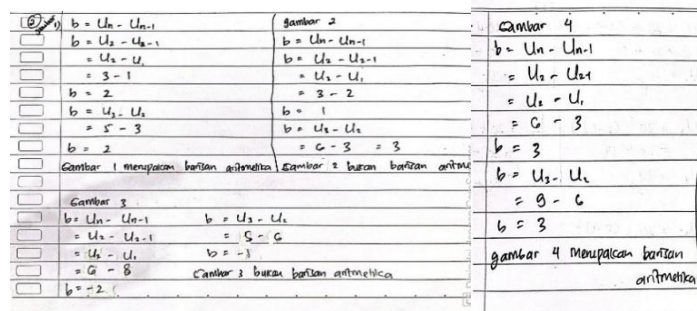 ② 1) b = Un - Un-1
b = U2 - U2-1
= U2 - U1
= 3 - 1
b = 2
b = U3 - U2
= 5 - 3
b = 2
Gambar 1 merupakan barisan aritmetika
gambar 2
b = Un - Un-1
b = U2 - U2-1
= U2 - U1
= 3 - 2
b = 1
b = U3 - U2
= 6 - 3 = 3
Gambar 2 bukan barisan aritme
Gambar 3
b = Un - Un-1
= U2 - U2-1
= U2 - U1
= 6 - 8
b = -2
b = U3 - U2
= 5 - 6
b = -1
Gambar 3 bukan barisan aritmetika
Gambar 4
b = Un - Un-1
= U2 - U2-1
= U2 - U1
= 6 - 3
b = 3
b = U3 - U2
= 9 - 6
b = 3
gambar 4 Merupakan barisan
aritmetika